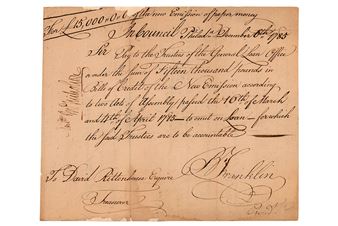 £15,000..0..0 of the new Emission of paper money
In Council Philada. December 6th 1785
Sir
Pay to the Trustees of the General Loan Office
or order the sum of Fifteen thousand pounds in
Bills of Credit of the New Emission according
to two Acts of Assembly passed the 16th of March
and 4th of April 1785 to emit on Loan for which
the said Trustees are to be accountable
To David Rittenhouse Esquire
Treasurer
B Franklin
Presidt.